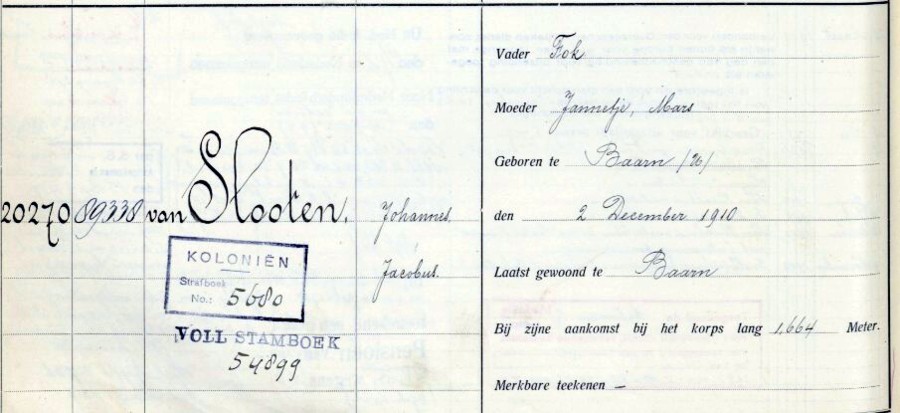 20270 89338 van Slooten, Johannes.
Jacobus.
KOLONIËN
Strafboek
No.: 5680
VOLL STAMBOEK
54899
Vader Fok
Moeder Jannetje, Mars
Geboren te Baarn /26/
den 2 December 1910
Laatst gewoond te Baarn
Bij zijne aankomst bij het korps lang 1,664 Meter.
Merkbare teekenen –